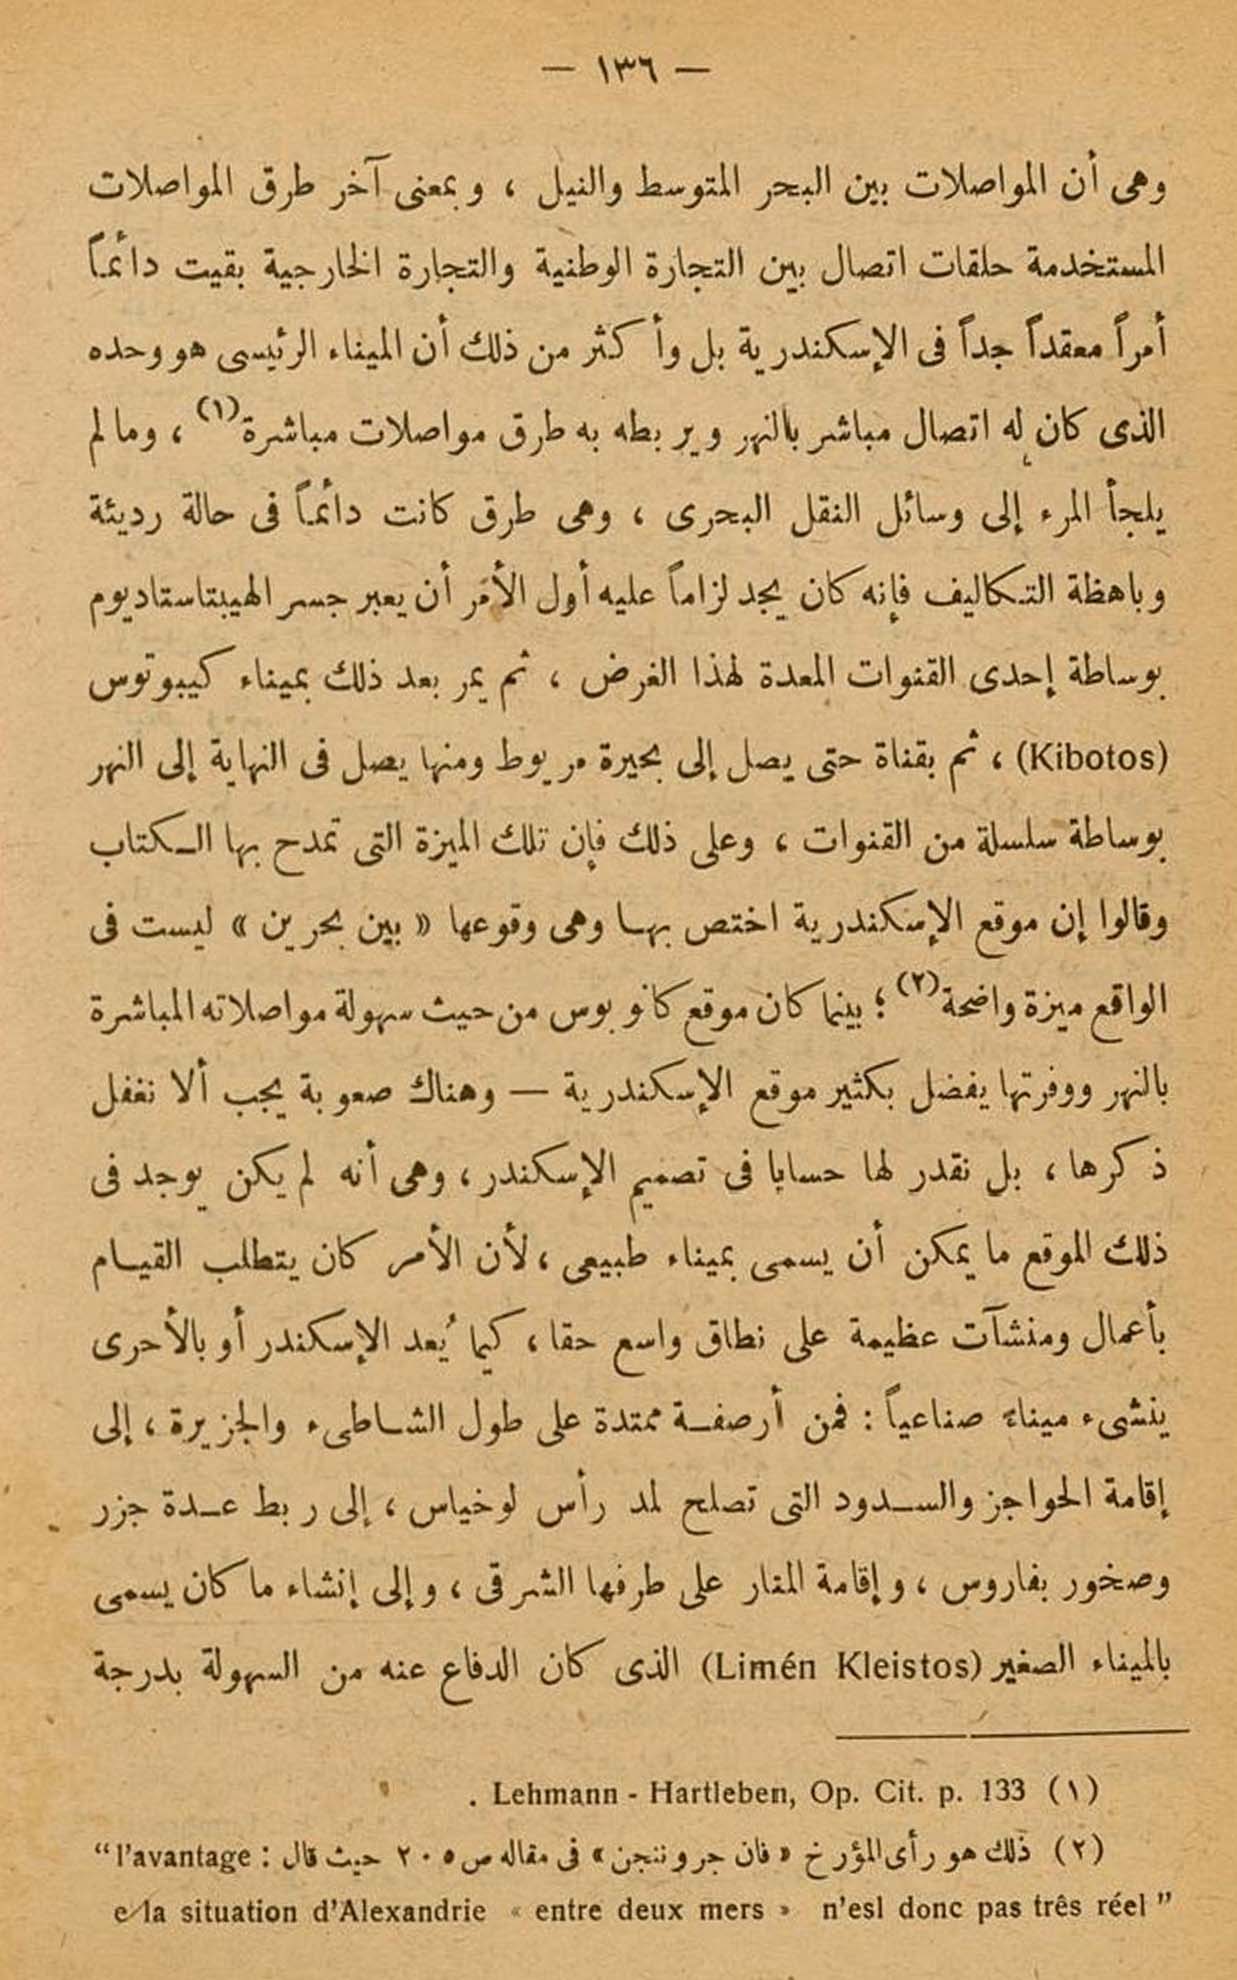 — ١٣٦ —
وهى أن المواصلات بين البحر المتوسط والنيل ، وبمعنى آخر طرق المواصلات
المستخدمة حلقات اتصال بين التجارة الوطنية والتجارة الخارجية بقيت دائماً
أمراً معقداً جداً فى الإسكندرية بل وأكثر من ذلك أن الميناء الرئيسى هو وحده
الذى كان له اتصال مباشر بالنهر ويربطه به طرق مواصلات مباشرة(١) ، وما لم
يلجأ المرء إلى وسائل النقل البحرى ، وهى طرق كانت دائماً فى حالة رديئة
وباهظة التكاليف فإنه كان يجد لزاماً عليه أول الأمر أن يعبر جسر الهيبتاستاديوم
بوساطة إحدى القنوات المعدة لهذا الغرض ، ثم يمر بعد ذلك بميناء كيبوتوس
(Kibotos) ، ثم بقناة حتى يصل إلى بحيرة مريوط ومنها يصل فى النهاية إلى النهر
بوساطة سلسلة من القنوات ، وعلى ذلك فإن تلك الميزة التى تمدح بها الكتاب
وقالوا إن موقع الإسكندرية اختص بها وهى وقوعها « بين بحرين » ليست فى
الواقع ميزة واضحة(٢) ؛ بينما كان موقع كانوبوس من حيث سهولة مواصلاته المباشرة
بالنهر ووفرتها يفضل بكثير موقع الإسكندرية — وهناك صعوبة يجب ألا نغفل
ذكرها ، بل نقدر لها حسابا فى تصميم الإسكندر ، وهى أنه لم يكن يوجد فى
ذلك الموقع ما يمكن أن يسمى بميناء طبيعى ، لأن الأمر كان يتطلب القيام
بأعمال ومنشآت عظيمة على نطاق واسع حقا ، كيما يُعد الإسكندر أو بالأحرى
ينشىء ميناءً صناعياً : فمن أرصفة ممتدة على طول الشاطىء والجزيرة ، إلى
إقامة الحواجز والسدود التى تصلح لمد رأس لوخياس ، إلى ربط عدة جزر
وصخور بفاروس ، وإقامة المنار على طرفها الشرقى ، وإلى إنشاء ما كان يسمى
بالميناء الصغير (Limén Kleistos) الذى كان الدفاع عنه من السهولة بدرجة
(١) Lehmann - Hartleben, Op. Cit. p. 133 .
(٢) ذلك هو رأى المؤرخ « فان جروننجن » فى مقاله ص ٢٠٥ حيث قال : “l'avantage
e la situation d'Alexandrie « entre deux mers » n'esl donc pas três réel”